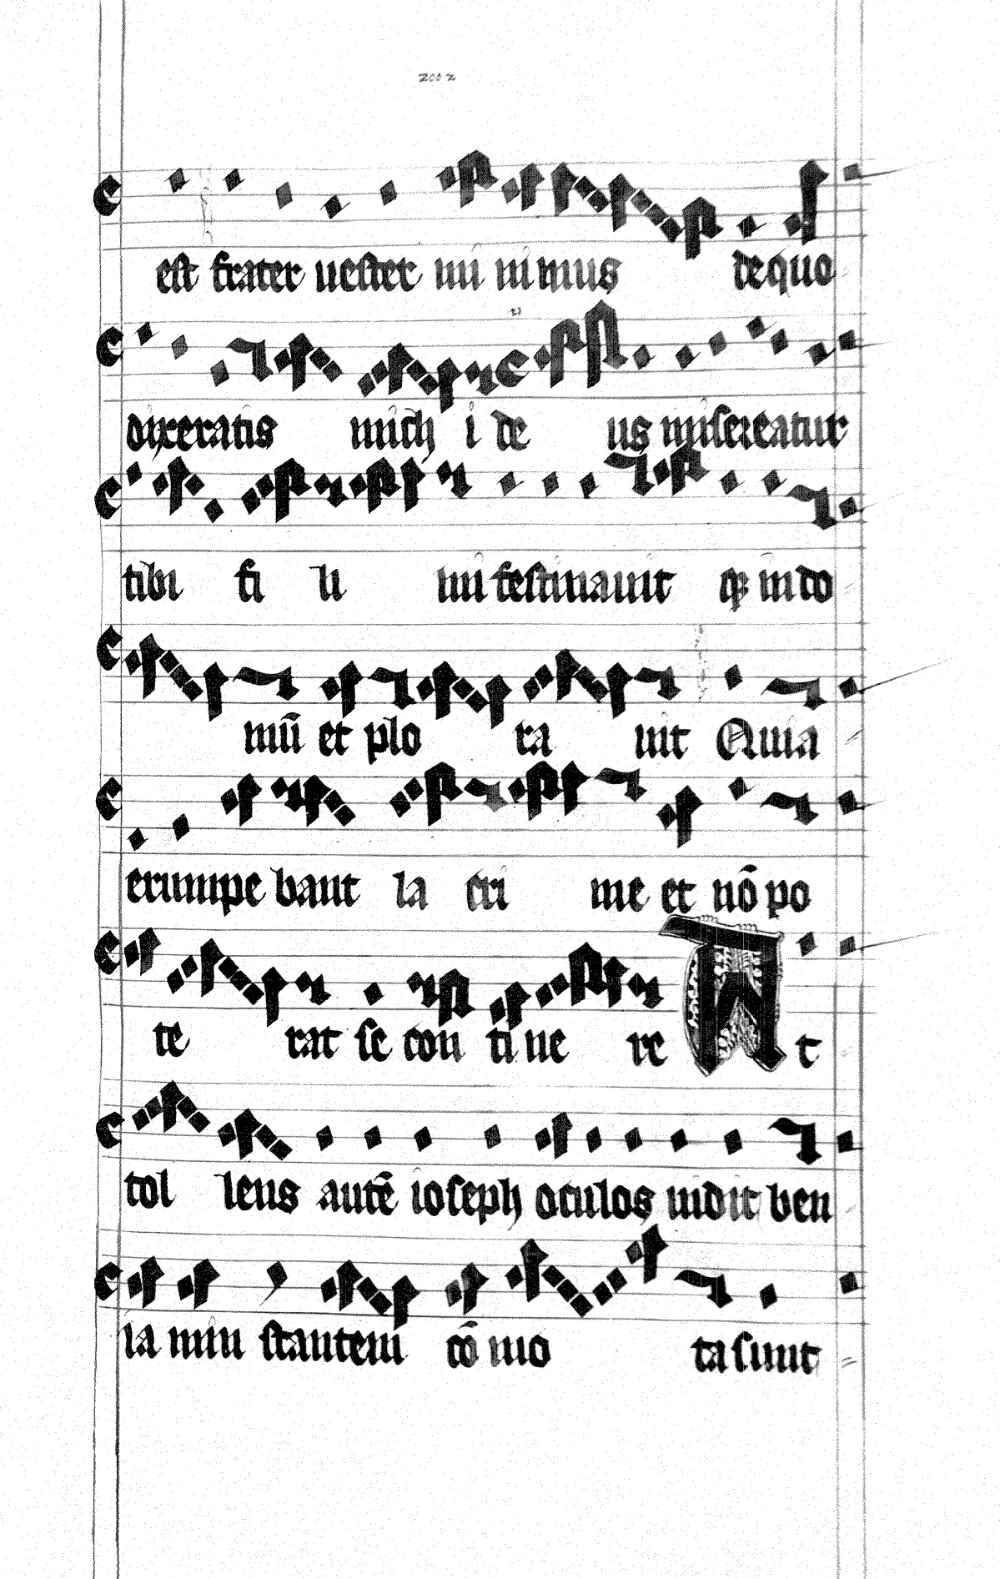 est frater uester mi nimus dequo
dixeratis mich i de us misereatur
tibi fi li mi festinauit qꝫ in do
mū et plo ra uit Quia
erumpe bant la cri me et nō po
te rat se con ti ne re At
tol lens autē ioseph oculos uidit ben
ia min stantem cō mo ta sunt